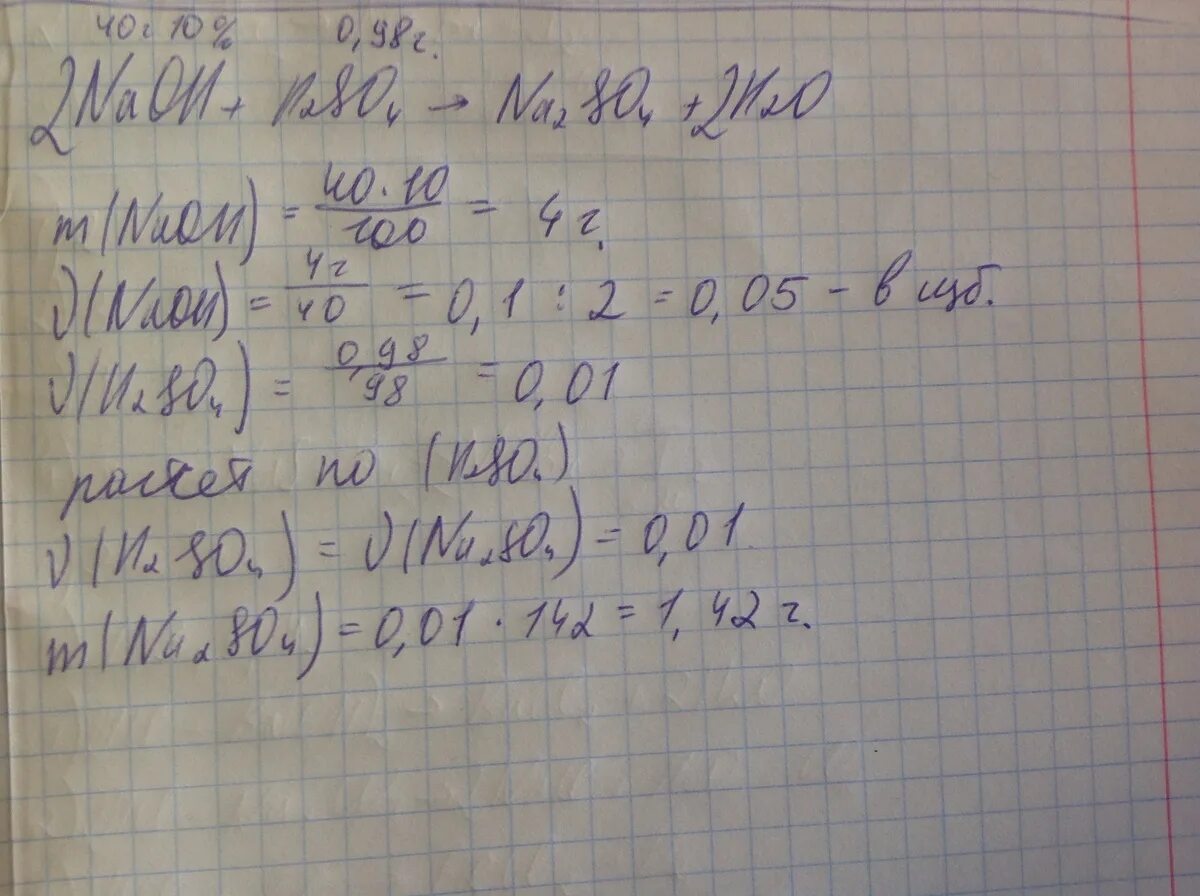 40г 10% 0,98г.
2NaOH + H₂SO₄ → Na₂SO₄ + 2H₂O
m(NaOH) = 40·10/100 = 4г.
ν(NaOH) = 4г/40 = 0,1 : 2 = 0,05 - в изб.
ν(H₂SO₄) = 0,98/98 = 0,01
расчет по (H₂SO₄)
ν(H₂SO₄) = ν(Na₂SO₄) = 0,01.
m(Na₂SO₄) = 0,01 · 142 = 1,42 г.